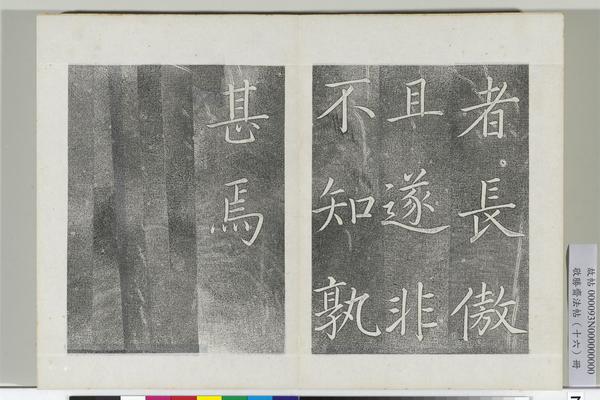 者長傲
且遂非
不知孰
甚焉
故帖000093N000000000
敬勝齋法帖（十六）冊